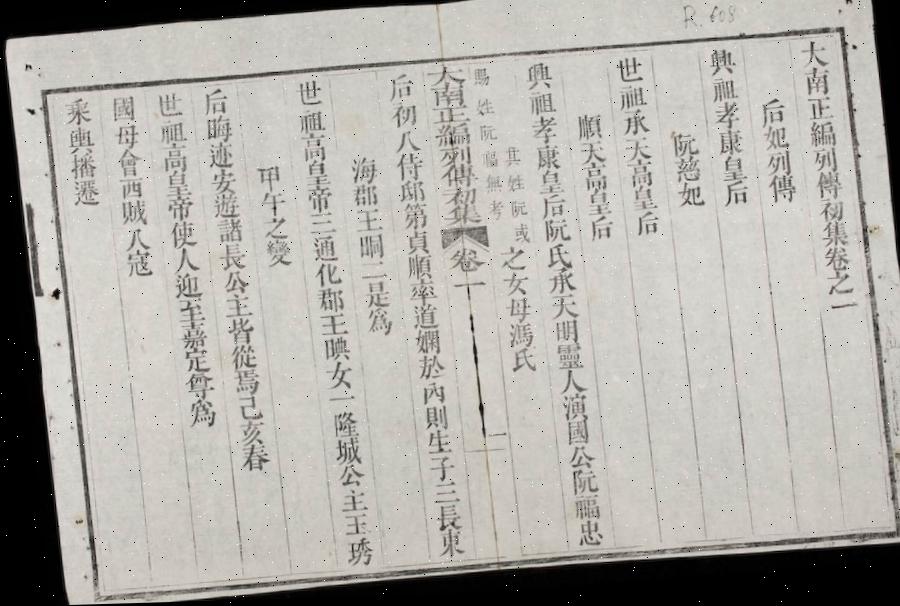 大南正編列傳初集卷之一
后妃列傳
興祖孝康皇后
阮慈妃
世祖承天高皇后
順天高皇后
興祖孝康皇后阮氏承天明靈人演國公阮福忠
其姓阮或
賜姓阮福無考
之女母馮氏
大南正編列傳初集 卷一 一
后初入侍邸第貞順率道嫻於內則生子三長東
海郡王晍二是為
世祖高皇帝三通化郡王晪女一隆城公主玉琇
甲午之變
后晦迹安遊諸長公主皆從焉己亥春
世祖高皇帝使人迎至嘉定尊為
國母會西賊入寇
乘輿播遷
R.608